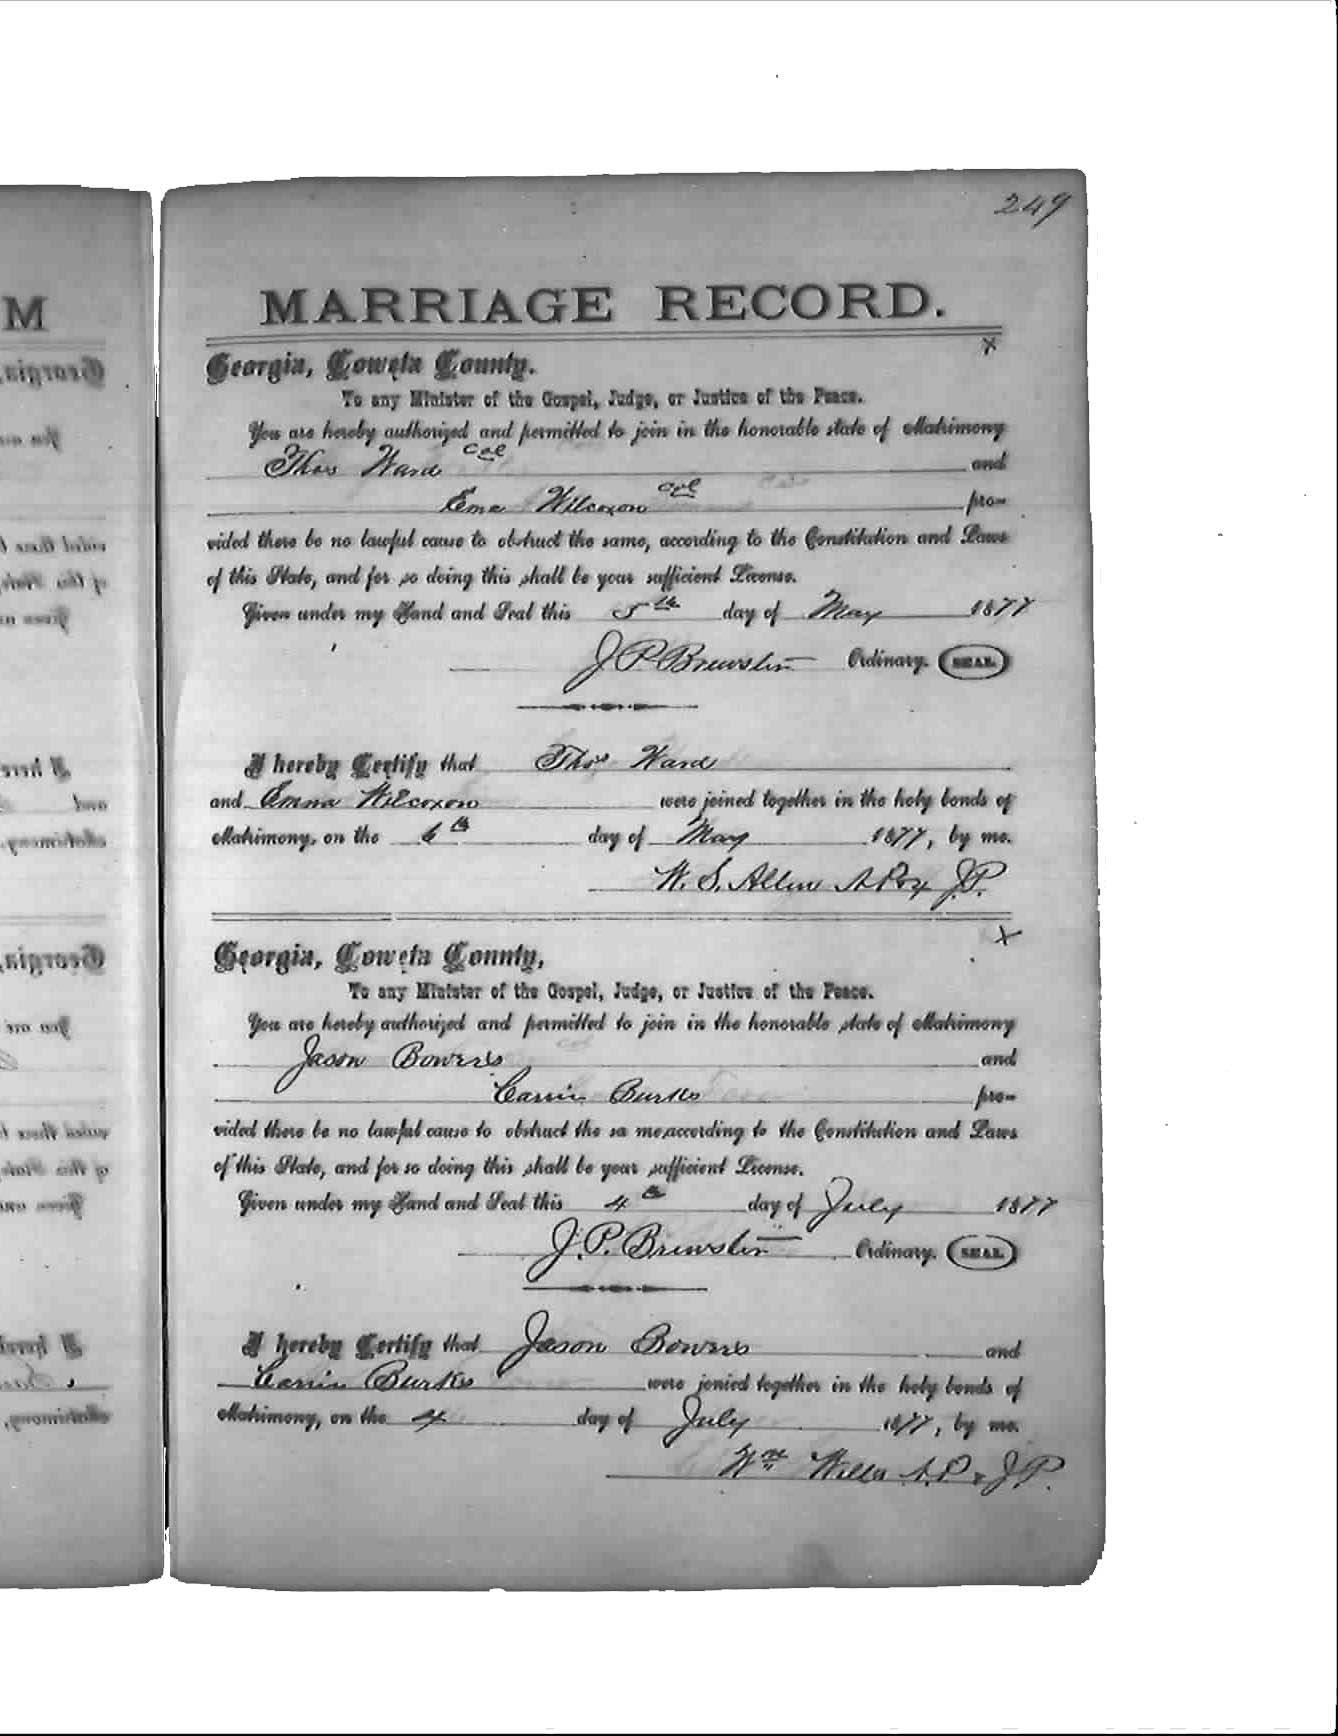 249
MARRIAGE RECORD.
x
Georgia, Coweta County.
To any Minister of the Gospel, Judge, or Justice of the Peace.
You are hereby authorized and permitted to join in the honorable state of Matrimony
Thos Ward col and
Ema Wilcoxon col pro-
vided there be no lawful cause to obstruct the same, according to the Constitution and Laws
of this State, and for so doing this shall be your sufficient License.
Given under my Hand and Seal this 5th day of May 1877
J P Brewster Ordinary. SEAL
I hereby Certify that Thos Ward
and Emma Wilcoxon were joined together in the holy bonds of
Matrimony, on the 6th day of May 1877, by me.
W. S. Allen J.P.
x
Georgia, Coweta County,
To any Minister of the Gospel, Judge, or Justice of the Peace.
You are hereby authorized and permitted to join in the honorable state of Matrimony
Jason Bowers and
Carrie Burks pro-
vided there be no lawful cause to obstruct the sa me,according to the Constitution and Laws
of this State, and for so doing this shall be your sufficient License.
Given under my Hand and Seal this 4th day of July 1877
J. P. Brewster Ordinary. SEAL
I hereby Certify that Jason Bowers and
Carrie Burks were jonied together in the holy bonds of
Matrimony, on the 4 day of July 1877, by me.
Wm J P.